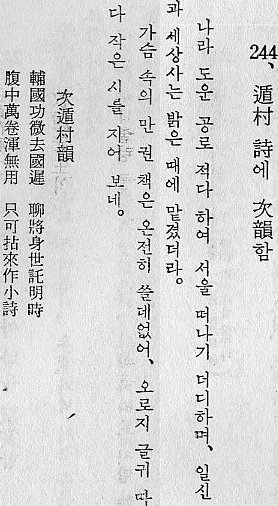 244、遁村 詩에 次韻함
나라 도운 공로 적다 하여 서울 떠나기 더디하며、일신
과 세상사는 밝은 때에 맡겼더라。
가슴 속의 만 권 책은 온전히 쓸데없어、오로지 글귀 따
다 작은 시를 지어 보네。
次遁村韻
輔國功微去國遲 聊將身世託明時
腹中萬卷渾無用 只可拈來作小詩